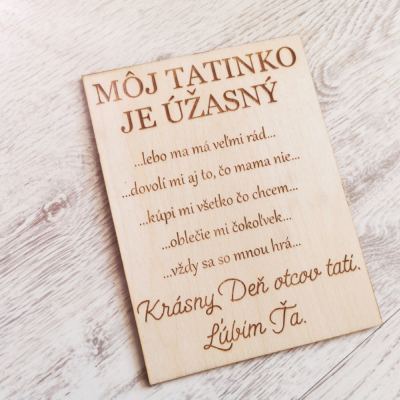 MÔJ TATINKO
JE ÚŽASNÝ
...lebo ma má veľmi rád...
...dovolí mi aj to, čo mama nie...
...kúpi mi všetko čo chcem...
...oblečie mi čokoľvek...
...vždy sa so mnou hrá...
Krásny Deň otcov tati.
Ľúbim Ťa.